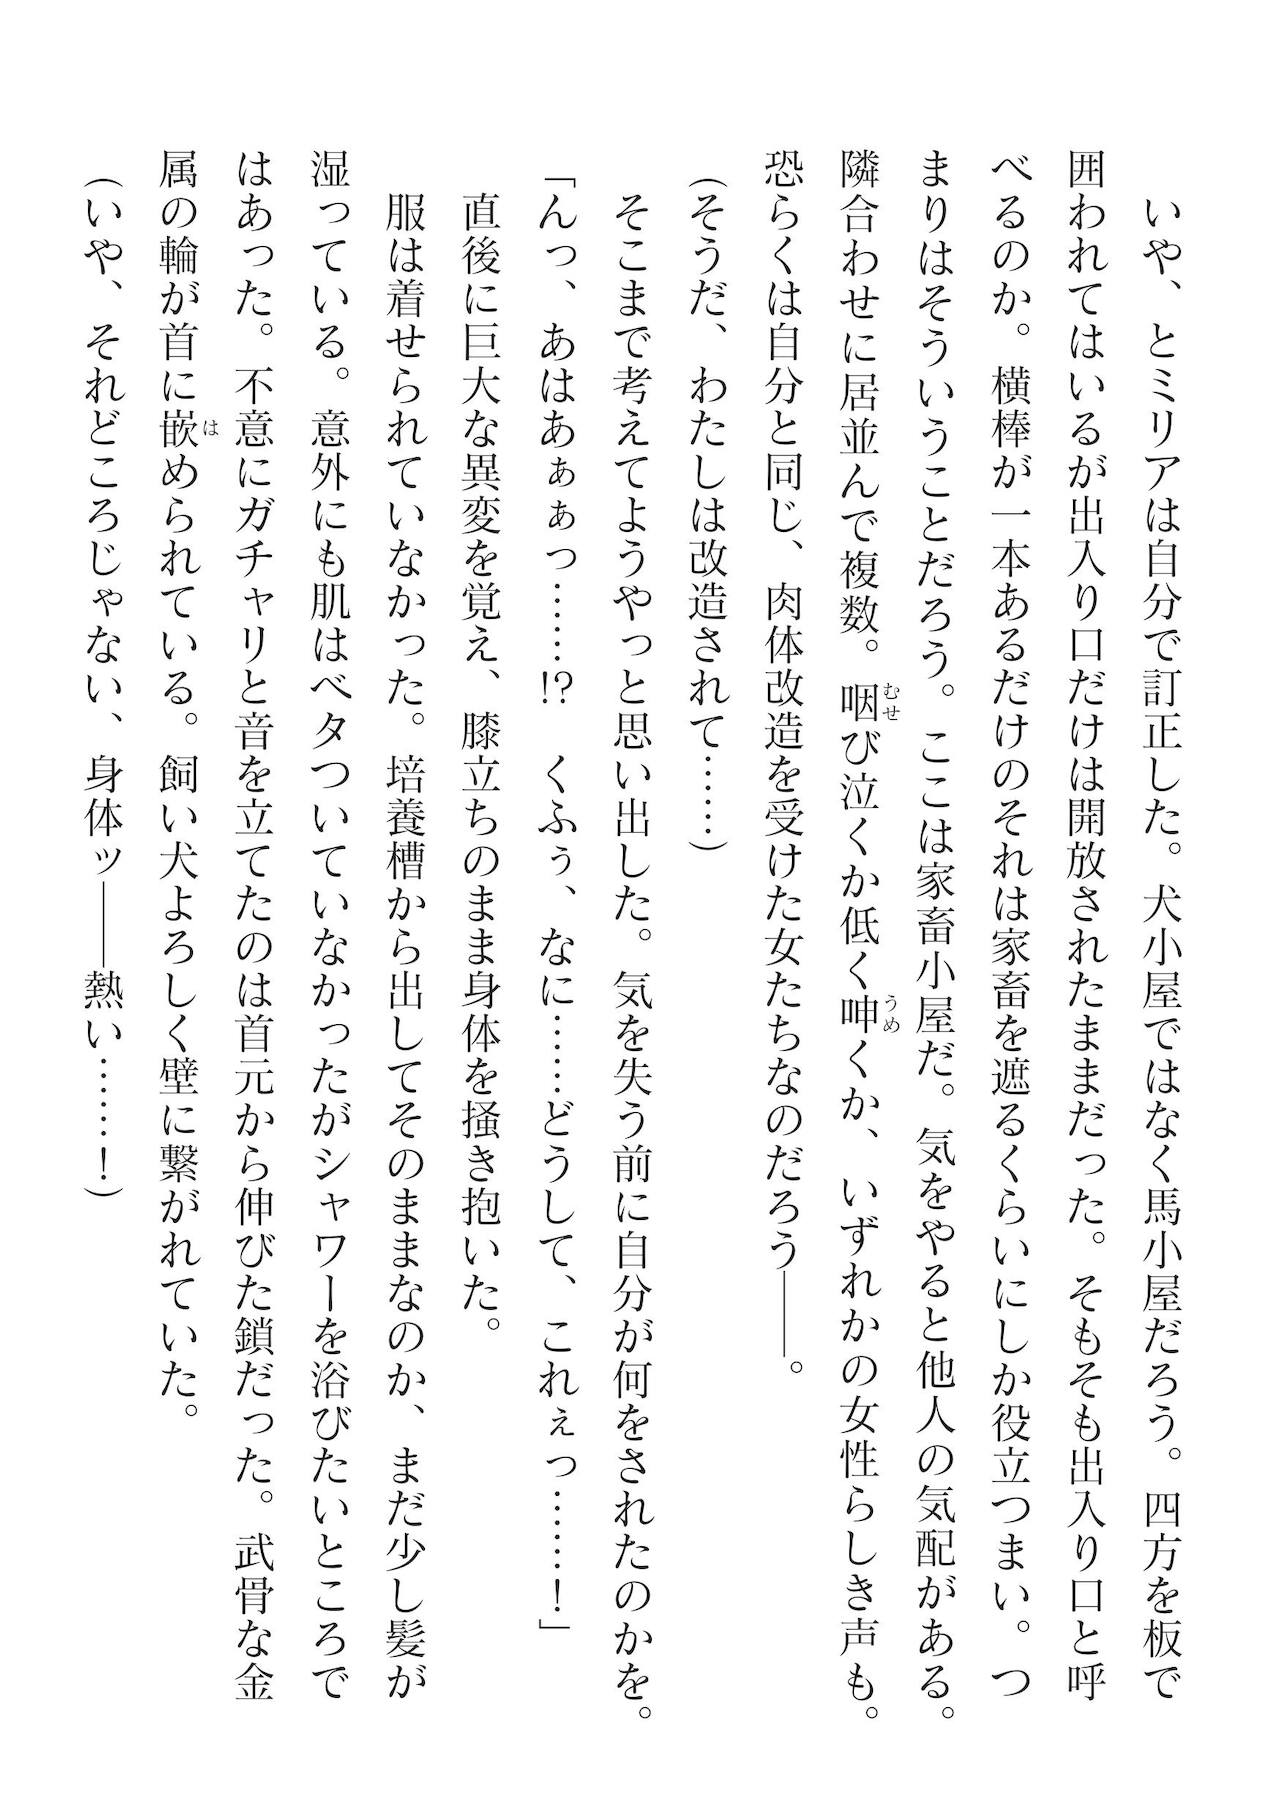 いや、とミリアは自分で訂正した。犬小屋ではなく馬小屋だろう。四方を板で
囲われてはいるが出入り口だけは開放されたままだった。そもそも出入り口と呼
べるのか。横棒が一本あるだけのそれは家畜を遮るくらいにしか役立つまい。つ
まりはそういうことだろう。ここは家畜小屋だ。気をやると他人の気配がある。
隣合わせに居並んで複数。咽び泣くか低く呻くか、いずれかの女性らしき声も。
むせ
うめ
恐らくは自分と同じ、肉体改造を受けた女たちなのだろう――。
(そうだ、わたしは改造されて……)
そこまで考えてようやっと思い出した。気を失う前に自分が何をされたのかを。
「んっ、あはあぁぁっ……!?　くふぅ、なに……どうして、これぇっ……!」
直後に巨大な異変を覚え、膝立ちのまま身体を掻き抱いた。
服は着せられていなかった。培養槽から出してそのままなのか、まだ少し髪が
湿っている。意外にも肌はベタついていなかったがシャワーを浴びたいところで
はあった。不意にガチャリと音を立てたのは首元から伸びた鎖だった。武骨な金
属の輪が首に嵌められている。飼い犬よろしく壁に繋がれていた。
は
(いや、それどころじゃない、身体ッ――熱い……!)